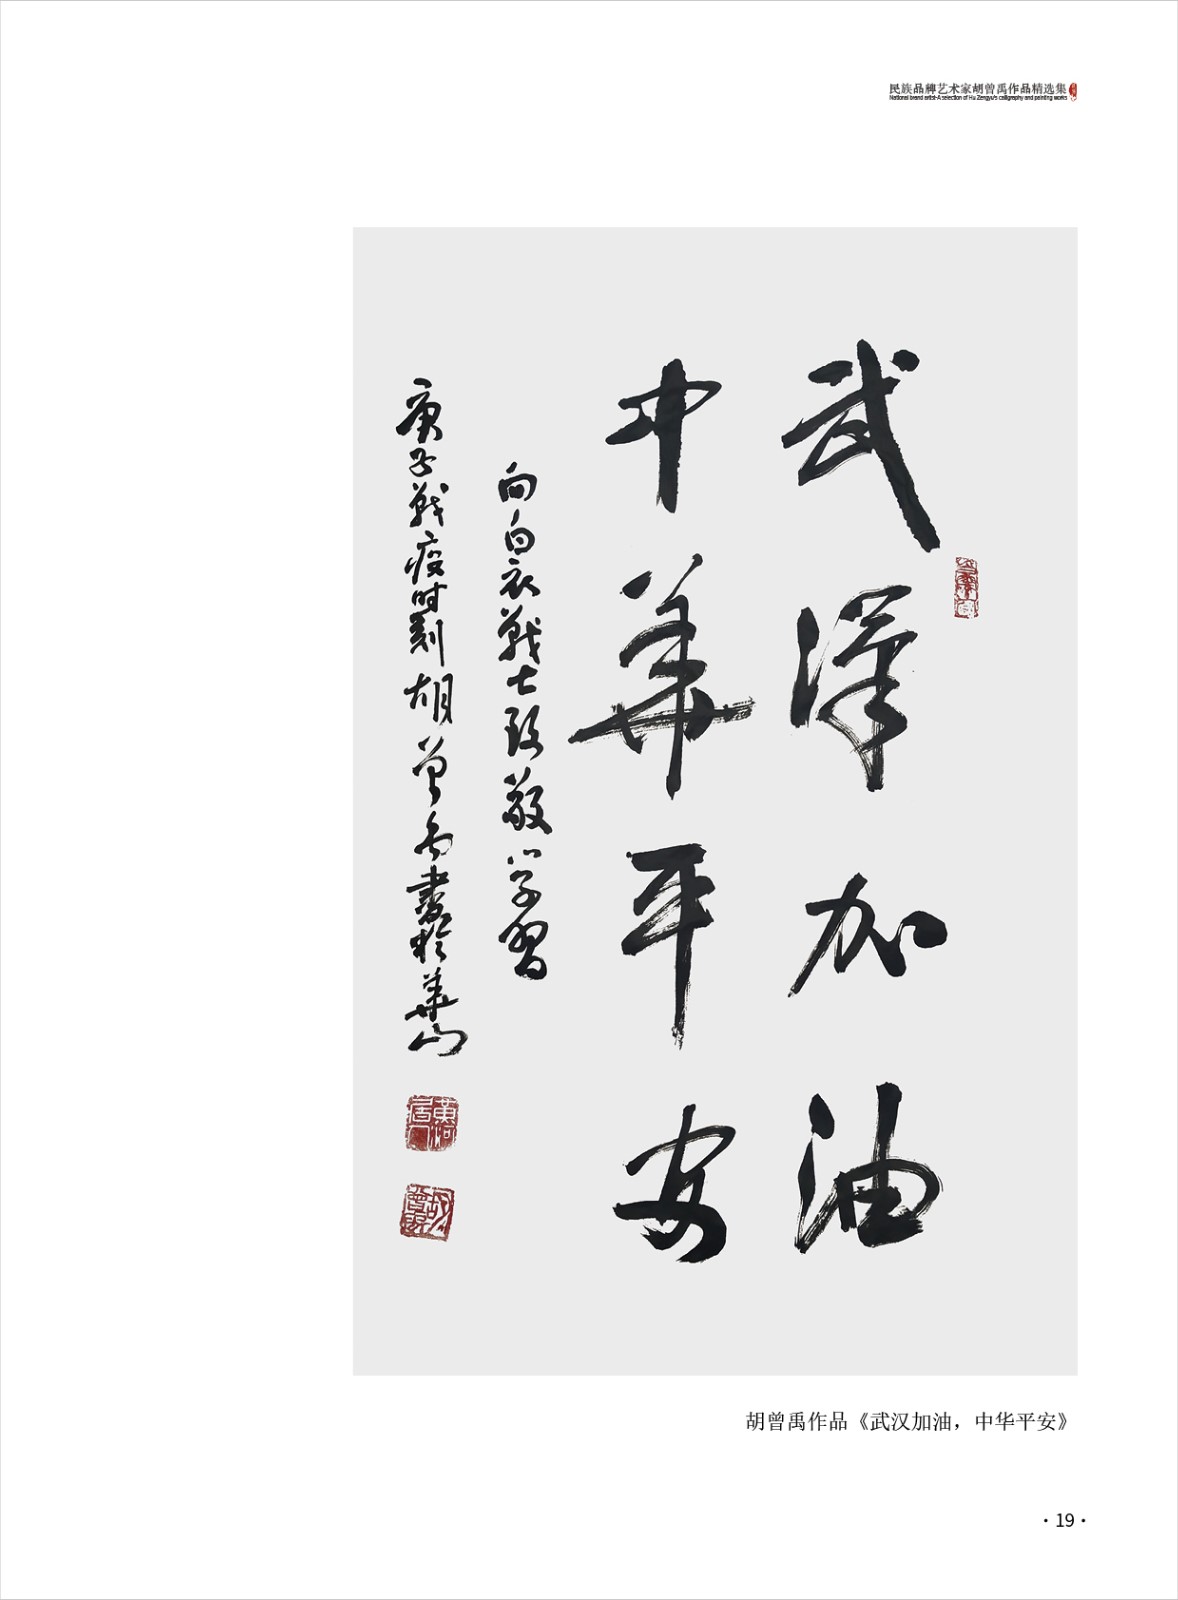 民族品牌艺术家胡曾禹作品精选集
National brand artist-A selection of Hu Zengyu's calligraphy and painting works
武漢加油
中華平安
向白衣戰士致敬学習
庚子戰疫时刻胡曾禹書於華山
胡曾禹作品《武汉加油，中华平安》
·19·